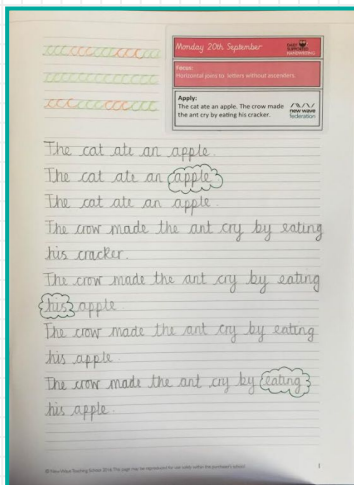 Monday 20th September
Focus:
Horizontal joins to letters without ascenders.
Apply:
The cat ate an apple. The crow made
the ant cry by eating his cracker.
new wave
federation
The cat ate an apple.
The cat ate an apple.
The cat ate an apple.
The crow made the ant cry by eating
his cracker.
The crow made the ant cry by eating
his apple
The crow made the ant cry by eating
his apple.
The crow made the ant cry by eating
his apple.
1